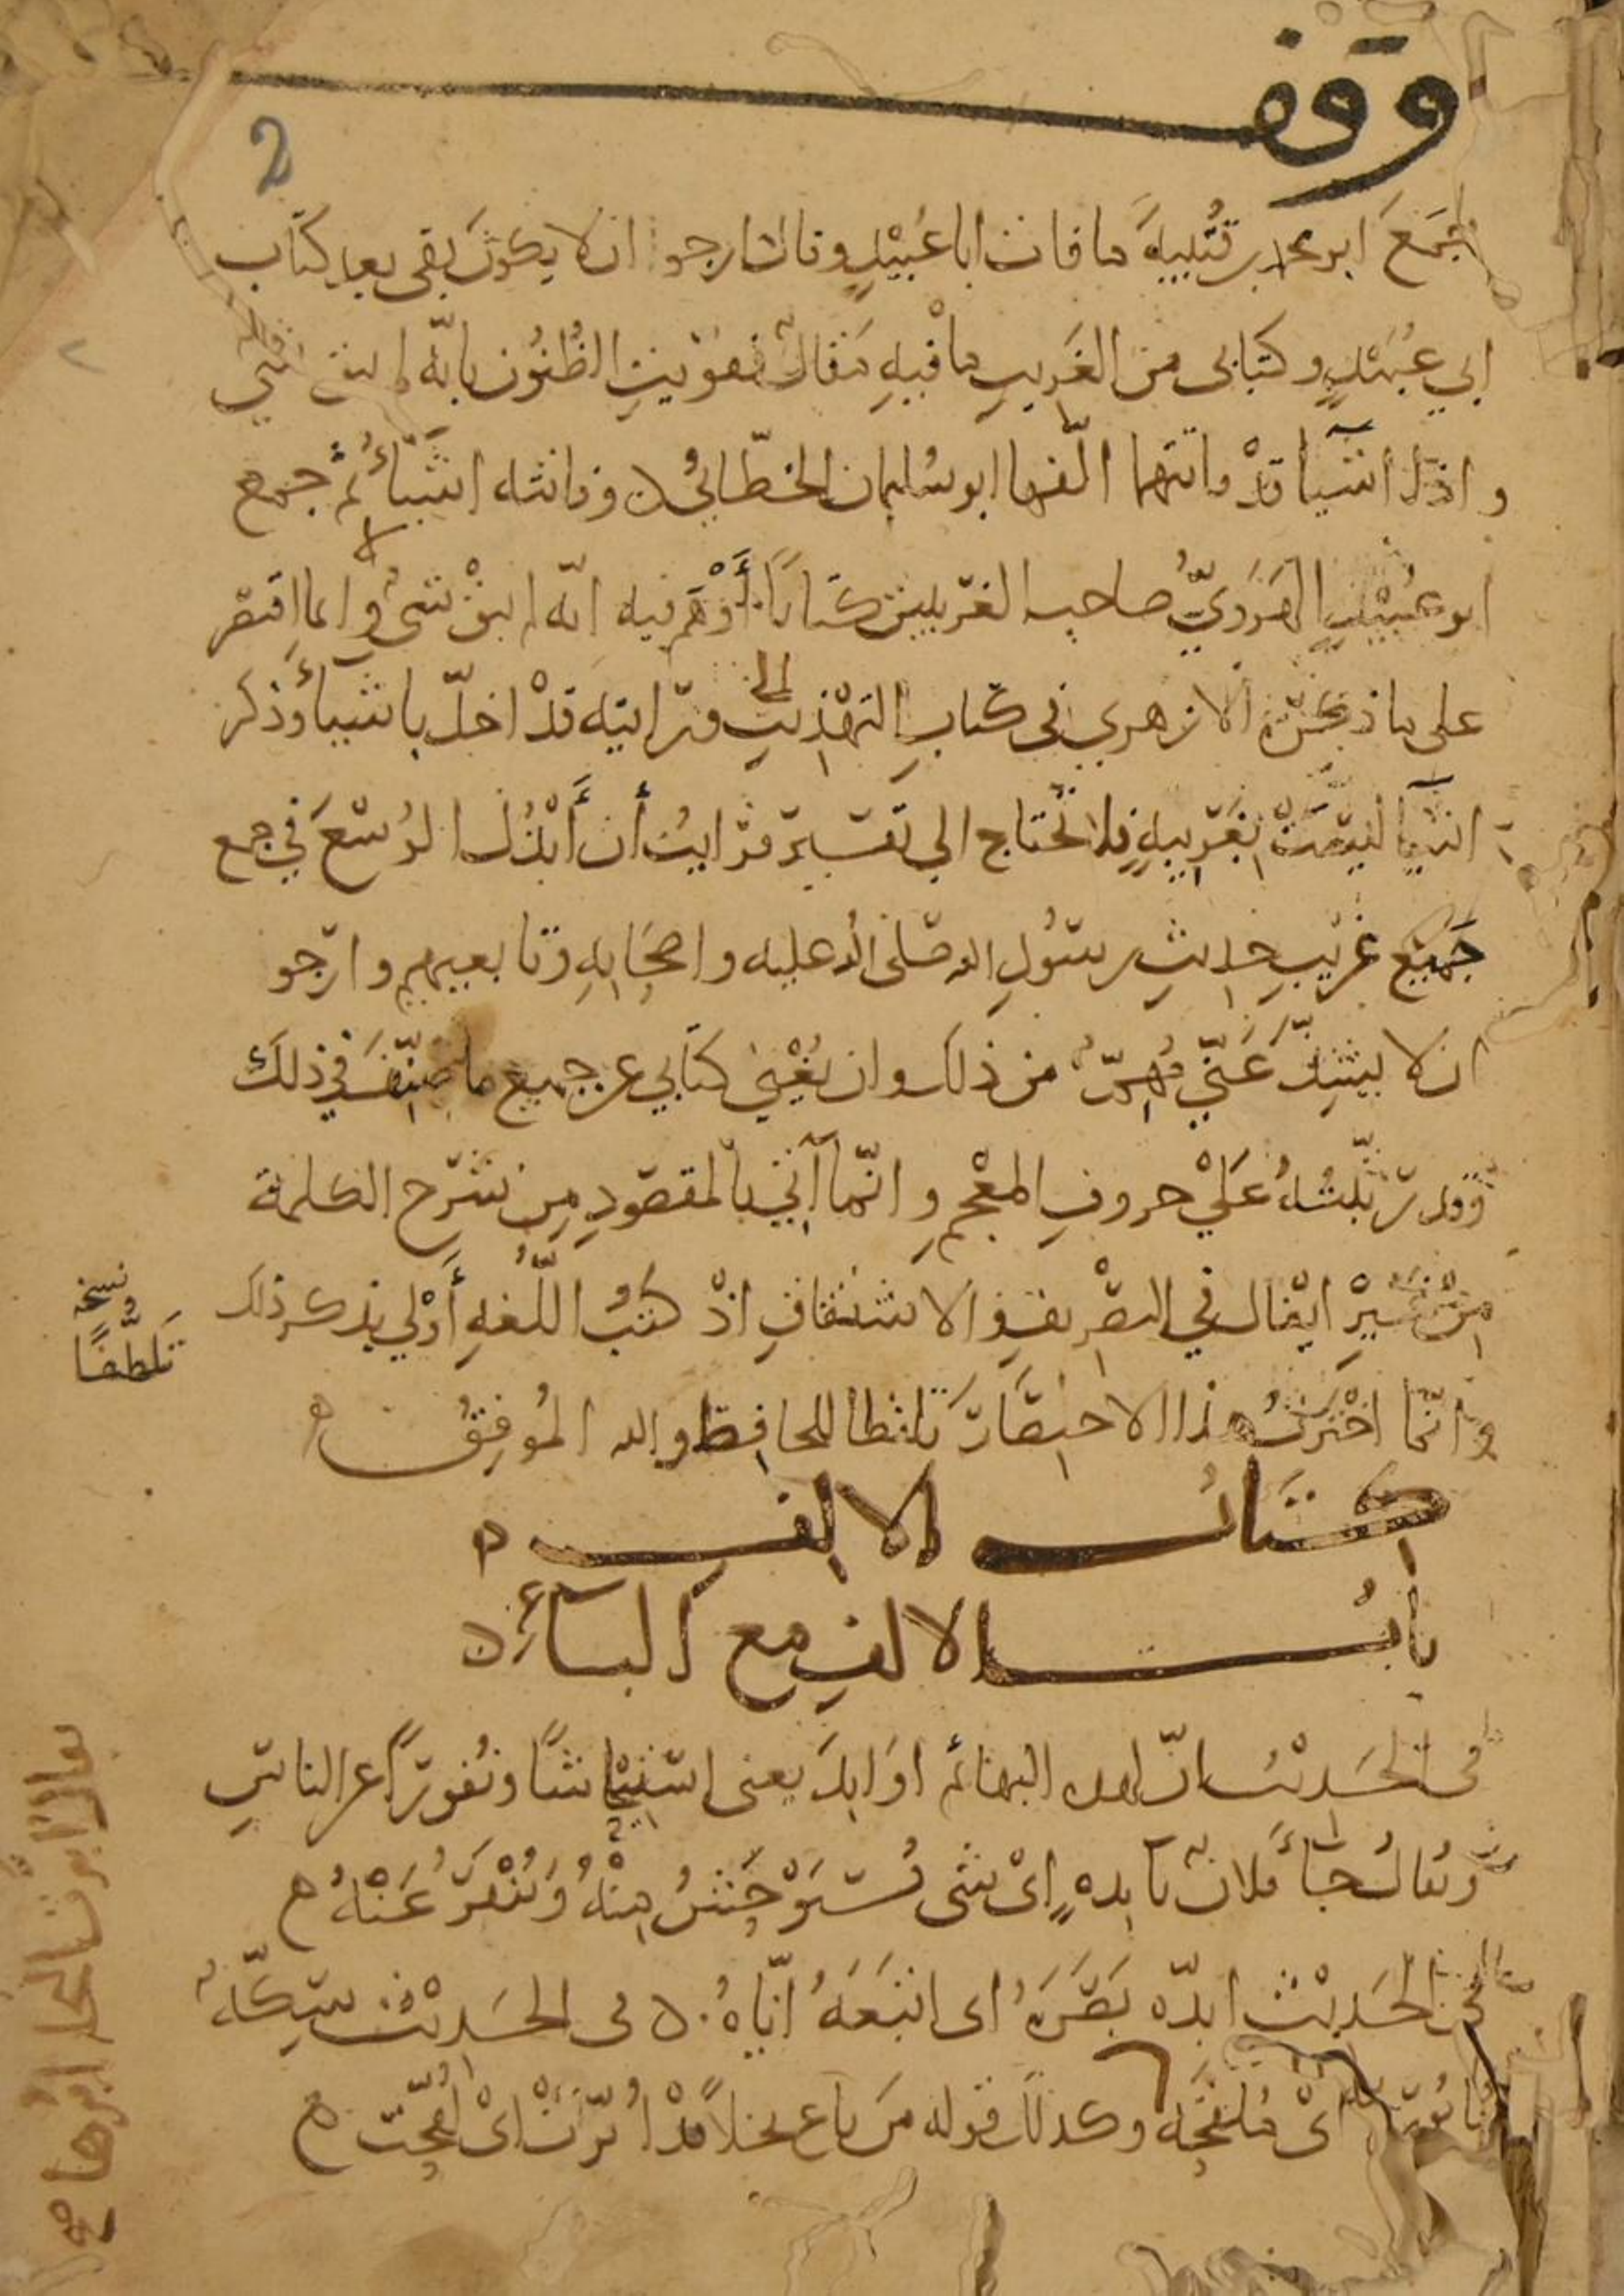 وقف
2
فجمع ابو محمد بن قتيبة ما فات ابا عُبَيْدٍ وقال ارجو ان لا يكون بقى بعد كتاب
ابي عُبَيْدٍ وكتابى من الغَرِيبِ ما فيهِ مَقالٌ فقوّيتِ الظُنُون بانّه لم يبق شي
واذا اشيا قدْ فاتتهما الّفها ابو سُليمان الخطّابيُّ وفاتته اشياءُ ثُمَّ جمع
ابو عُبَيْدٍ الهَرَويّ صاحب الغريبين كتابًا أَوْهَمَ فيه انّه لم يبقْ شىء وانما اقتصر
على ما ذكره الازهري في كتابِ التهْذِيبِ فرايته قدْ اخلّ باشياء وذكر
اشيا ليستْ بغَرِيبةٍ فلا تحتاج الي تفسيرٍ فرايتُ أن أَبْذُل الوُسْعَ في جمع
جميع غريبِ حديثِ رسُولِ الله صلى الله عليه واصحَابِهِ وتابعيهم وارجو
ان لا يشِذّ عَنّي مُهِمٌّ من ذلك وان يُغْنِي كتابي عن جميع ما صُنِّفَ في ذلك
وقد رتّبتُهُ عَلَيْ حروفِ المعْجمِ وانّما آتي بالمقصودِ مِن شرح الكلمة
مِنْ غَيْرِ ايغال في التصْرِيفِ والاشتقاقِ اذْ كتُبُ اللّغةِ أَوْلي بذكر ذلك
نسخة
تَلَطُّفًا
وانّما اخْتَرتُ هذا الاختِصَارَ تلفظا للحافِظ والله المُوفِقُ
كتَابُ الالِف
بابُ الالفِ مع البآءِ
في الحَدِيْث انّ لهذه البهائم اوَابِدَ يعنى اسْتِيْحَاشًا ونُفورًا عن الناسِ
ويُقالُ جَاءَ فلانٌ بآبِدةٍ اىْ بشى يُسْتَوْحَشُ مِنْهُ ويُنْفَرُ عَنْهُ
في الحَدِيْث ابدّه بَصَرَهُ اى اتبَعَهُ ايّاهُ في الحَدِيْث سِكّةٌ
مَابُورَةٌ اىْ مُلقَّحَة وكذلك قوله مَن باع نخلًا قدْ اُبّرَتْ اىْ لُقِحّت